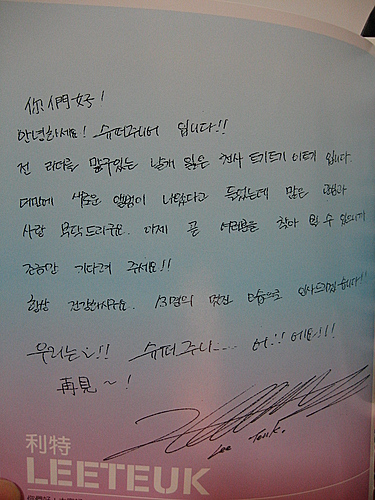 你們好!
안녕하세요! 슈퍼주니어 입니다!!
전 리더를 맡구있는 날개 잃은 천사 트기트기 이트기 입니다.
대만에 새로운 앨범이 나왔다고 들었는데 많은 관심과
사랑 부탁드리구요. 이제 곧 여러분을 찾아 뵐 수 있으니까
조금만 기다려 주세요!!
항상 건강하시구요. 13명의 멋진 모습으로 인사드리겠습니다!!
우리는!! 슈퍼주니.... 어!! 에요!!!
再見~!
Lee Teuk.
利特
LEETEUK